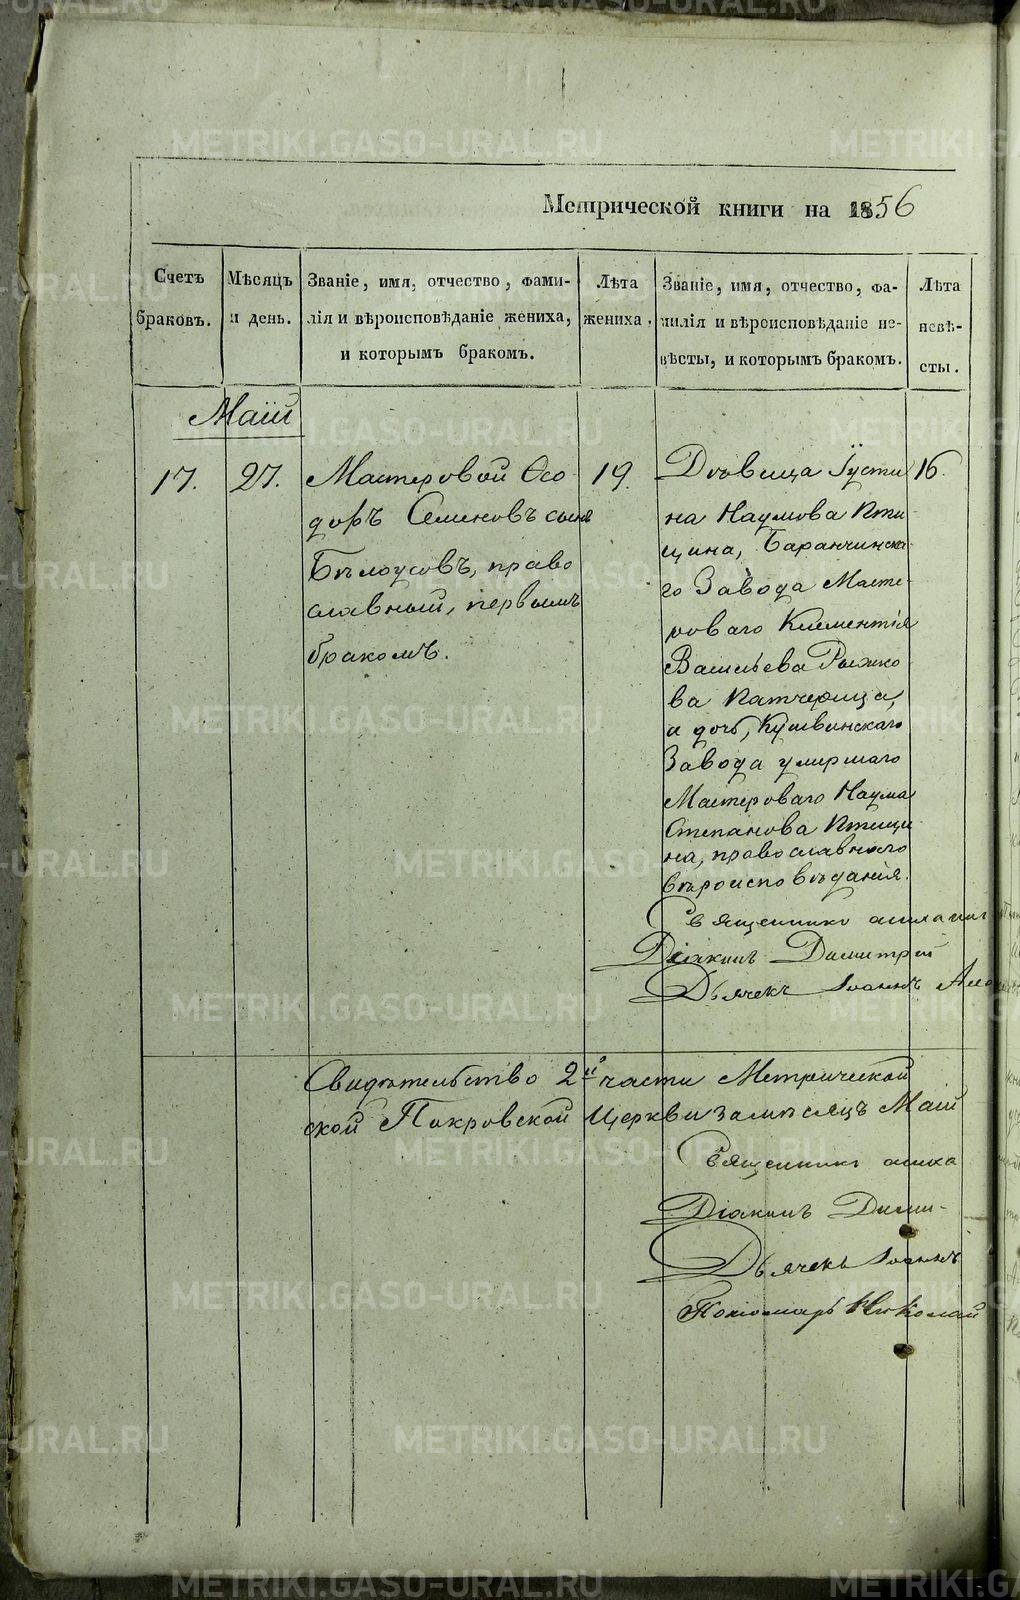 METRIKI.GASO-URAL.RU
Метрической книги на 1856
Счетъ браковъ.
Мѣсяцъ и день.
Званіе, имя, отчество, фами-
лія и вѣроисповѣданіе жениха,
и которымъ бракомъ.
Лѣта жениха.
Званіе, имя, отчество, фа-
милія и вѣроисповѣданіе не-
вѣсты, и которымъ бракомъ.
Лѣта невѣ-
сты.
Маій
17.
27.
Мастеровой Ѳео
доръ Семеновъ сынъ
Бѣлоусовъ, право
славный, первымъ
бракомъ.
19.
Дѣвица Іусти
на Наумова Пти
цина, Баранчинска
го Завода Масте-
роваго Климентія
Васильева Рыжко
ва Патчерица,
а дочь, Кушвинскаго
Завода умершаго
Мастероваго Наума
Степанова Птици
на, православнаго
вѣроисповѣданія.
16.
Священникъ
Діаконъ Димитрій
Дьячекъ Іоаннъ
Свидѣтельство 2й части Метрической
ской Покровской Церкви за мѣсяцъ Маій
Священникъ
Діаконъ Дими-
Дьячекъ Іоаннъ
Пономарь Николай